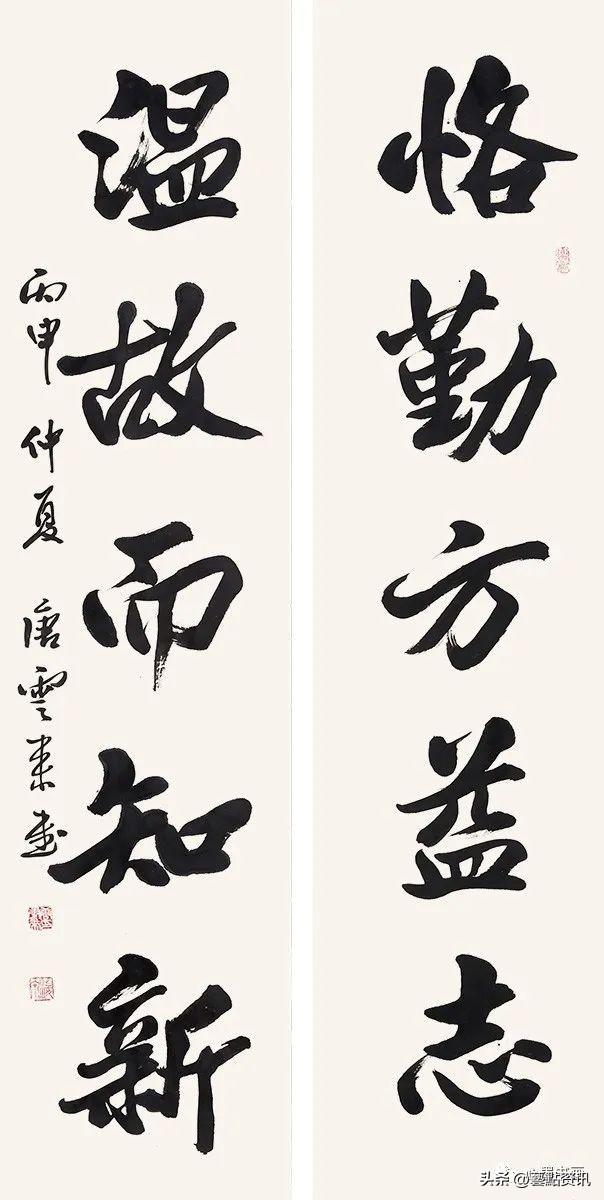 恪勤方益志
温故而知新
丙申 仲夏 唐雲来書
头条 @藝點资讯